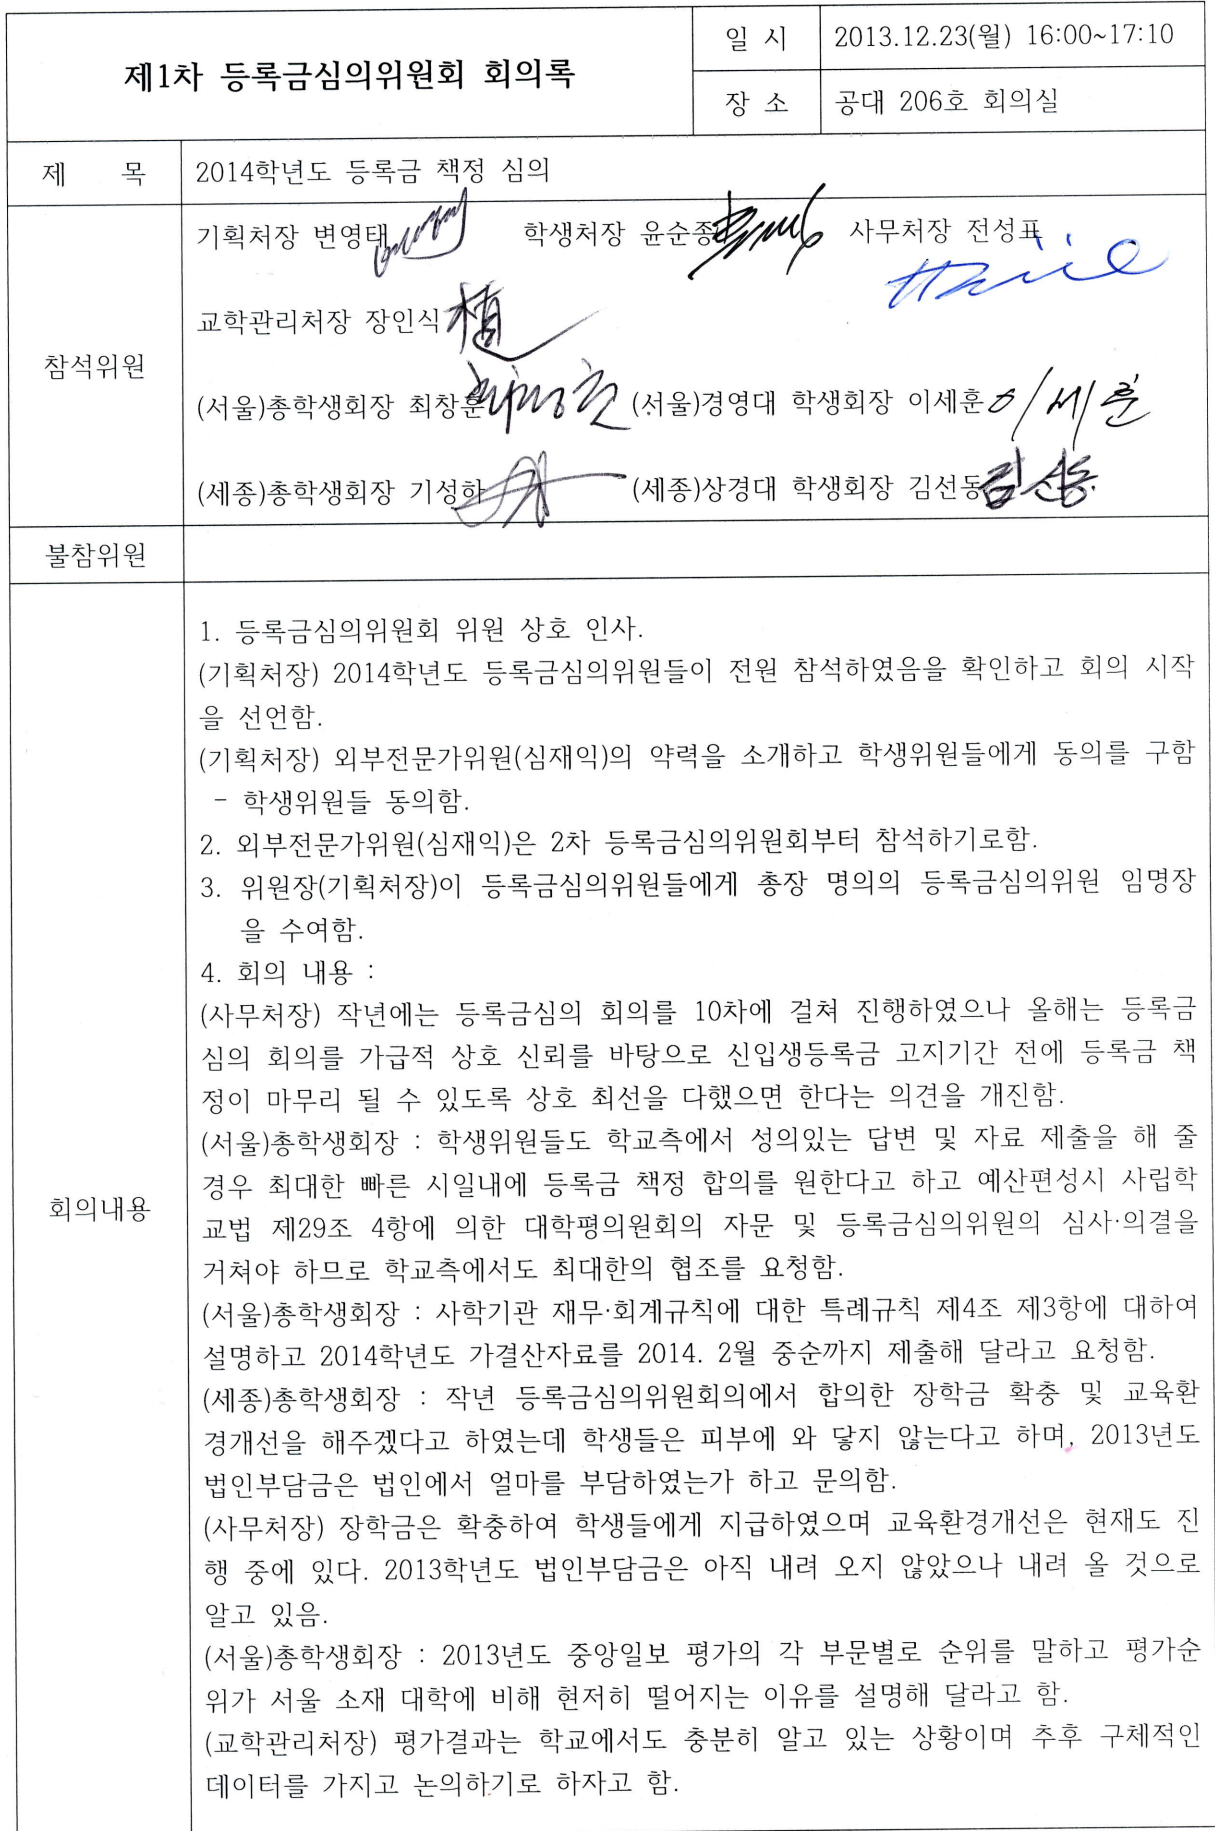 제1차 등록금심의위원회 회의록
일 시 2013.12.23(월) 16:00~17:10
장 소 공대 206호 회의실
제 목 2014학년도 등록금 책정 심의
참석위원
기획처장 변영태 학생처장 윤순종 사무처장 전성표
교학관리처장 장인식
(서울)총학생회장 최창훈 (서울)경영대 학생회장 이세훈 이세훈
(세종)총학생회장 기성하 (세종)상경대 학생회장 김선동 김선동
불참위원
회의내용
1. 등록금심의위원회 위원 상호 인사.
(기획처장) 2014학년도 등록금심의위원들이 전원 참석하였음을 확인하고 회의 시작
을 선언함.
(기획처장) 외부전문가위원(심재익)의 약력을 소개하고 학생위원들에게 동의를 구함
- 학생위원들 동의함.
2. 외부전문가위원(심재익)은 2차 등록금심의위원회부터 참석하기로함.
3. 위원장(기획처장)이 등록금심의위원들에게 총장 명의의 등록금심의위원 임명장
을 수여함.
4. 회의 내용 :
(사무처장) 작년에는 등록금심의 회의를 10차에 걸쳐 진행하였으나 올해는 등록금
심의 회의를 가급적 상호 신뢰를 바탕으로 신입생등록금 고지기간 전에 등록금 책
정이 마무리 될 수 있도록 상호 최선을 다했으면 한다는 의견을 개진함.
(서울)총학생회장 : 학생위원들도 학교측에서 성의있는 답변 및 자료 제출을 해 줄
경우 최대한 빠른 시일내에 등록금 책정 합의를 원한다고 하고 예산편성시 사립학
교법 제29조 4항에 의한 대학평의원회의 자문 및 등록금심의위원의 심사·의결을
거쳐야 하므로 학교측에서도 최대한의 협조를 요청함.
(서울)총학생회장 : 사학기관 재무·회계규칙에 대한 특례규칙 제4조 제3항에 대하여
설명하고 2014학년도 가결산자료를 2014. 2월 중순까지 제출해 달라고 요청함.
(세종)총학생회장 : 작년 등록금심의위원회의에서 합의한 장학금 확충 및 교육환
경개선을 해주겠다고 하였는데 학생들은 피부에 와 닿지 않는다고 하며, 2013년도
법인부담금은 법인에서 얼마를 부담하였는가 하고 문의함.
(사무처장) 장학금은 확충하여 학생들에게 지급하였으며 교육환경개선은 현재도 진
행 중에 있다. 2013학년도 법인부담금은 아직 내려 오지 않았으나 내려 올 것으로
알고 있음.
(서울)총학생회장 : 2013년도 중앙일보 평가의 각 부문별로 순위를 말하고 평가순
위가 서울 소재 대학에 비해 현저히 떨어지는 이유를 설명해 달라고 함.
(교학관리처장) 평가결과는 학교에서도 충분히 알고 있는 상황이며 추후 구체적인
데이터를 가지고 논의하기로 하자고 함.